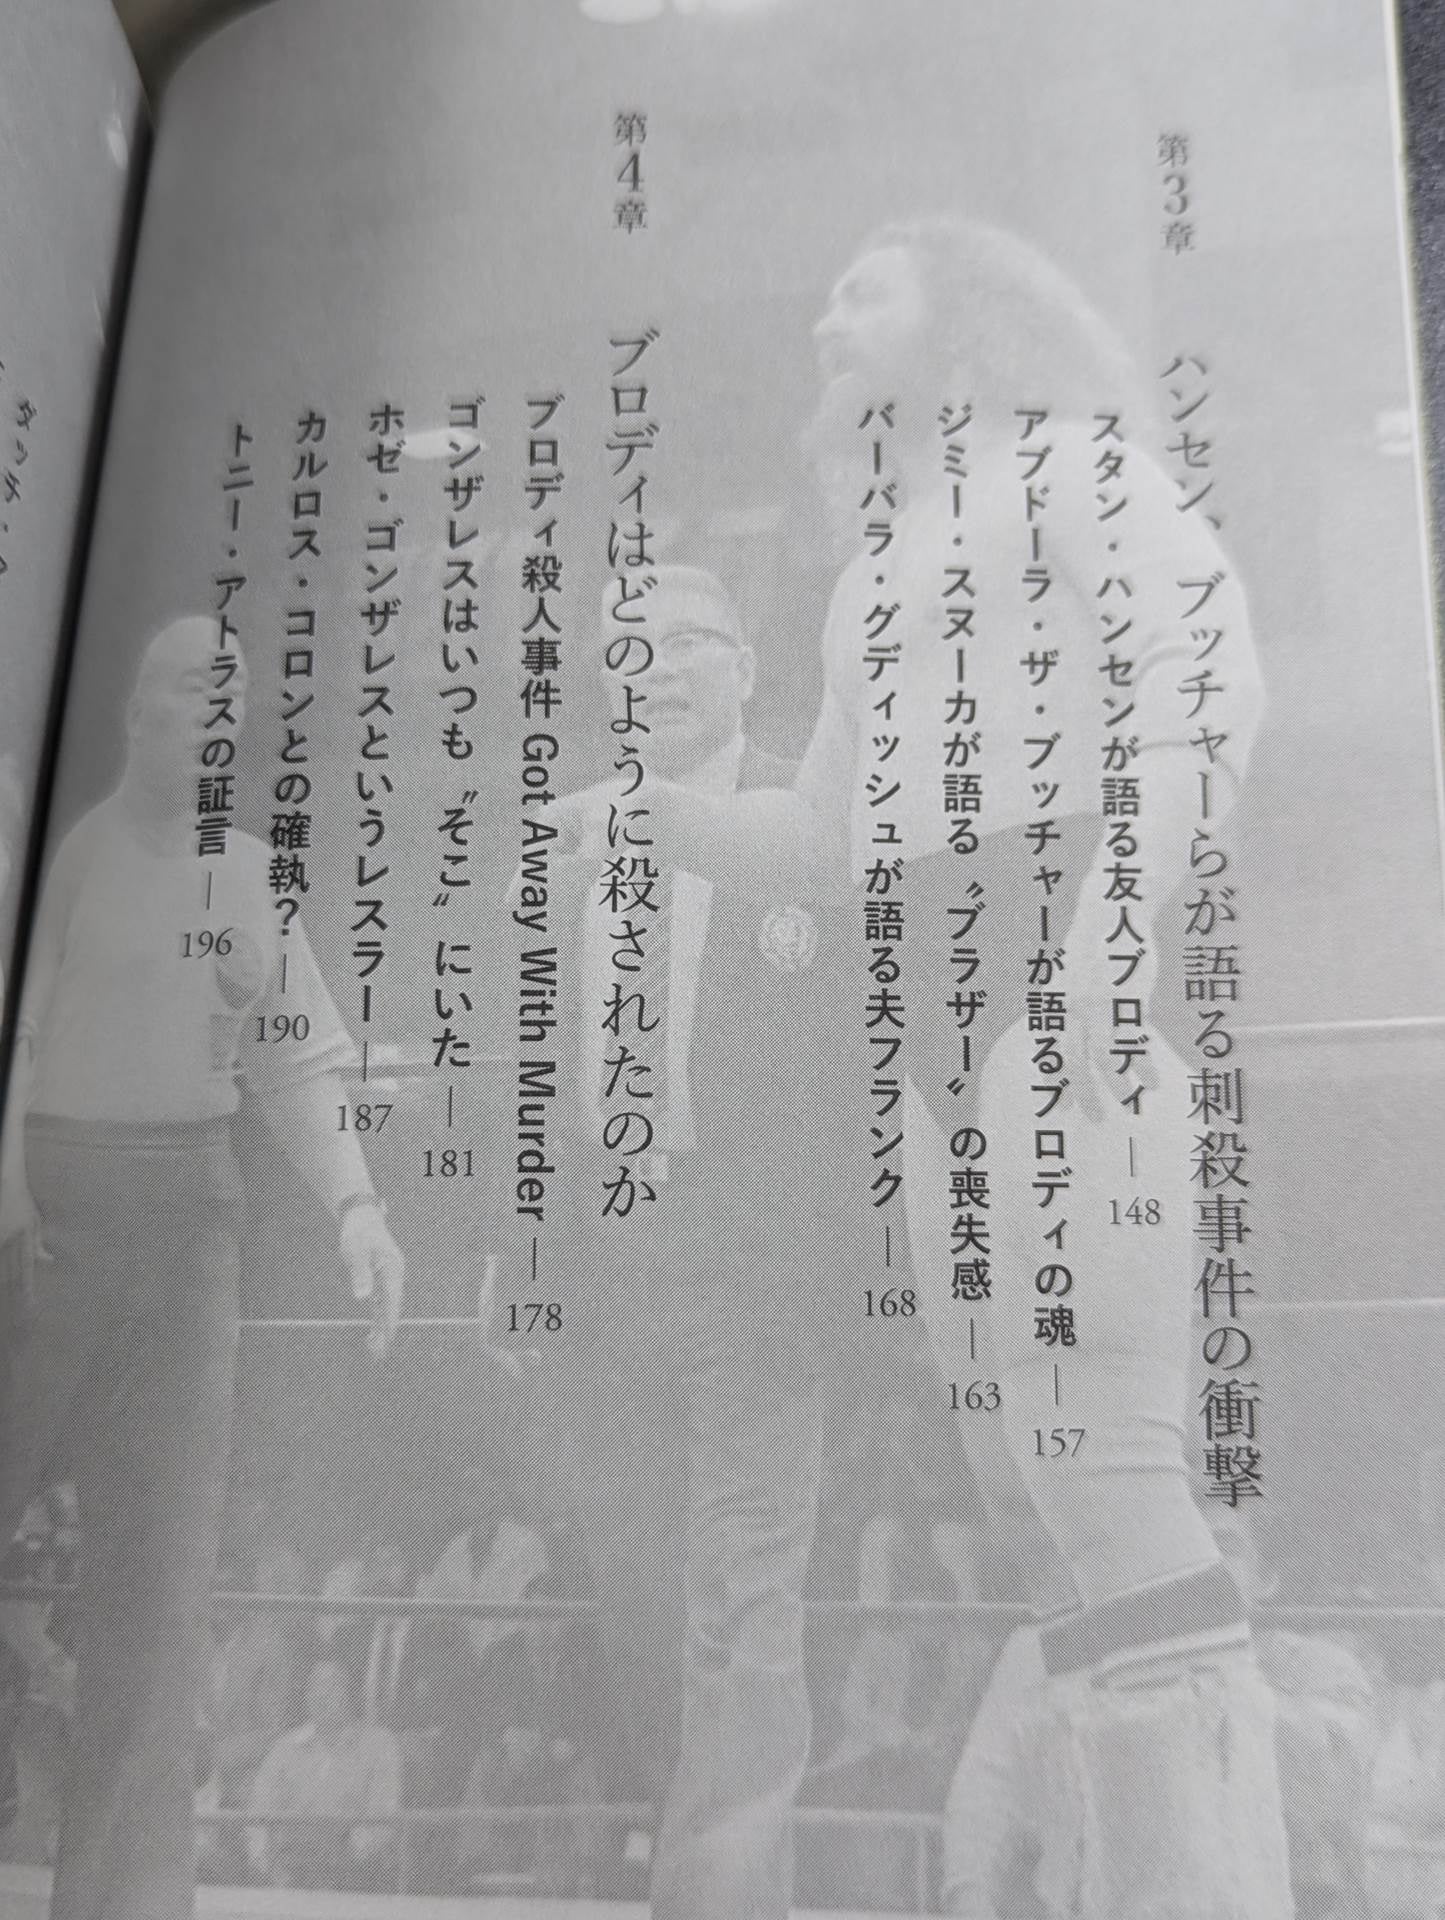 第3章 ハンセン、ブッチャーらが語る刺殺事件の衝撃
スタン・ハンセンが語る友人ブロディ ― 148
アブドーラ・ザ・ブッチャーが語るブロディの魂 ― 157
ジミー・スヌーカが語る〝ブラザー〟の喪失感 ― 163
バーバラ・グディッシュが語る夫フランク ― 168
第4章 ブロディはどのように殺されたのか
ブロディ殺人事件 Got Away With Murder ― 178
ゴンザレスはいつも〝そこ〟にいた ― 181
ホゼ・ゴンザレスというレスラー ― 187
カルロス・コロンとの確執? ― 190
トニー・アトラスの証言 ― 196